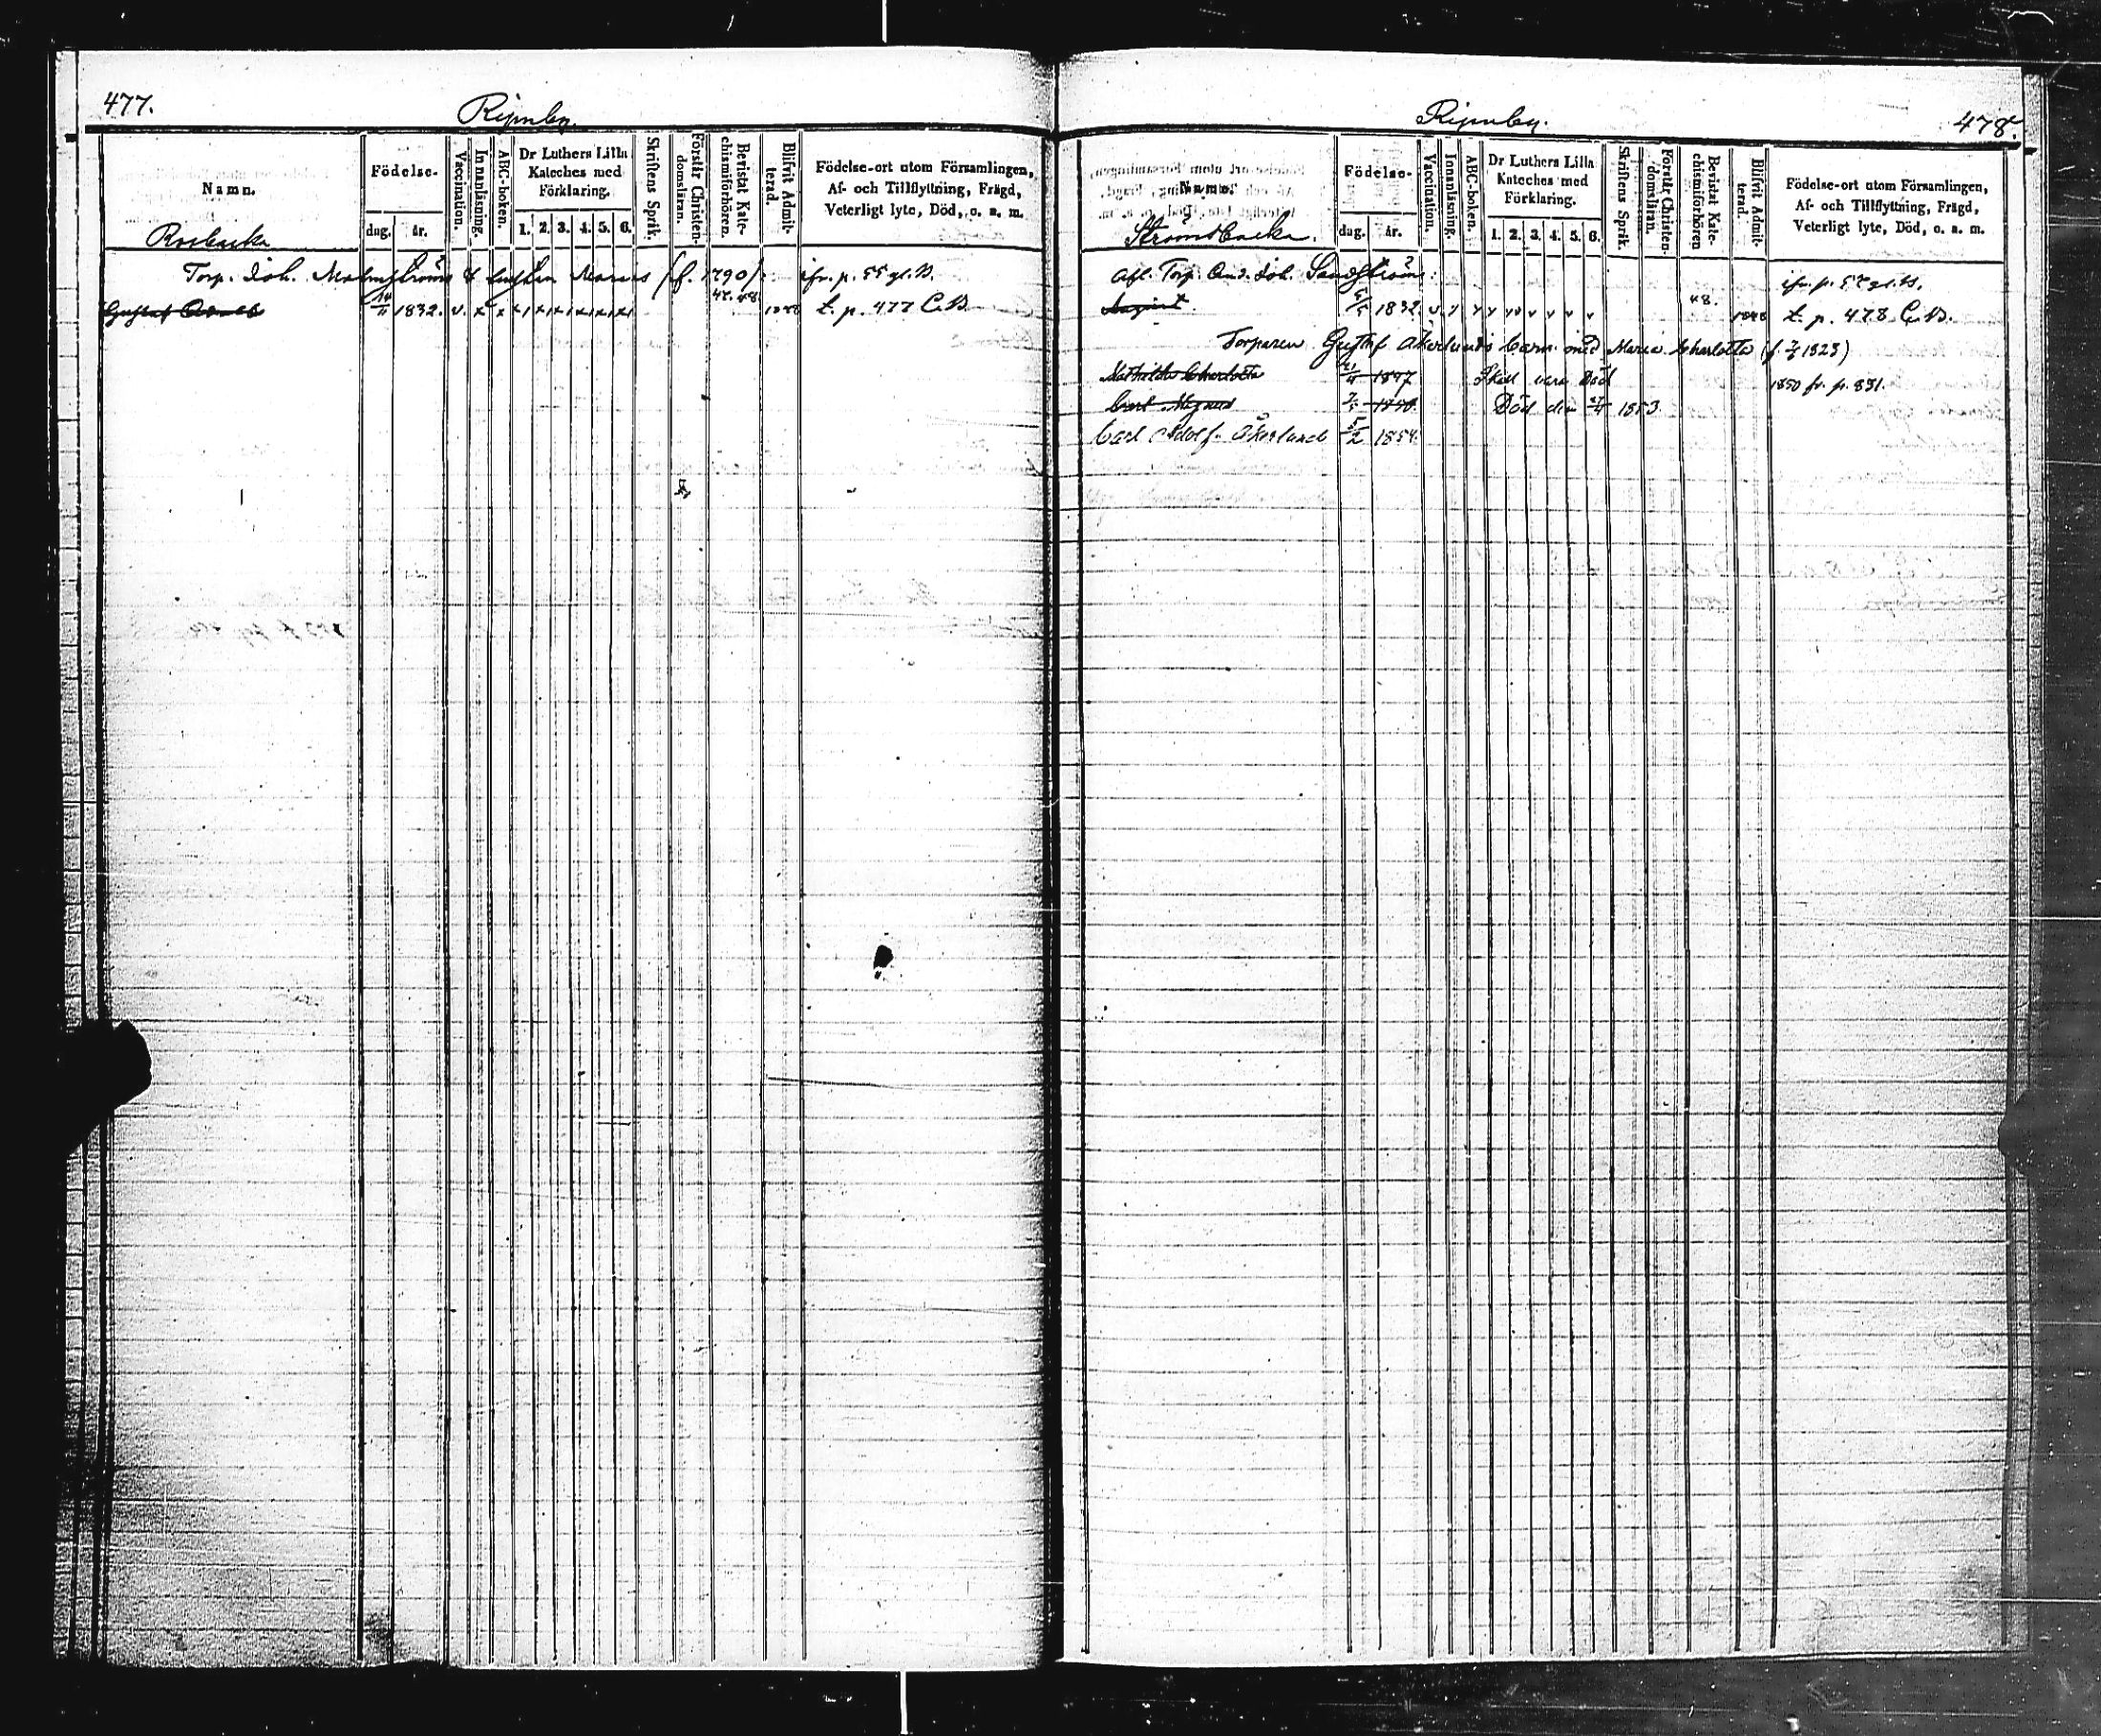 477.
Rijmby.
Namn.
Födelse-
dag. år.
Vaccination.
Innanläsning.
ABC-boken.
Dr Luthers Lilla
Kateches med
Förklaring.
1. 2. 3. 4. 5. 6.
Skriftens Språk.
Förstår Christen-
domsläran.
Bevistat Kate-
chismiförhören.
Blifvit Admit-
terad.
Födelse-ort utom Församlingen,
Af- och Tillflyttning, Frägd,
Veterligt lyte, Död, o. s. m.
Torp. Joh. Malmströms & Maria's (f. 1790): p. 55 gl. B.
Gustaf 14/11 1832. v. x x x x x x x x 47. 48 t. p. 477 C.B.
Rijmby.
478.
Namn.
Strömsbacka.
Födelse-
dag. år.
Vaccination.
Innanläsning.
ABC-boken.
Dr Luthers Lilla
Kateches med
Förklaring.
1. 2. 3. 4. 5. 6.
Skriftens Språk.
Förstår Christen-
domsläran.
Bevistat Kate-
chismiförhören
Blifvit Admit-
terad.
Födelse-ort utom Församlingen,
Af- och Tillflyttning, Frägd,
Veterligt lyte, Död, o. s. m.
Afl. Torp. And. Joh. Sandströms:
1832 v. 48. 1848 t. p. 478 C.B.
Torparen Gustaf Åkerlunds barn med Maria Charlotta
Mathilda Charlotta 1847 Skall vara Död 1850 fr. p. 831.
Carl Magnus 1850. Död den 1853.
Carl Adolf Åkerlund 5/2 1854.